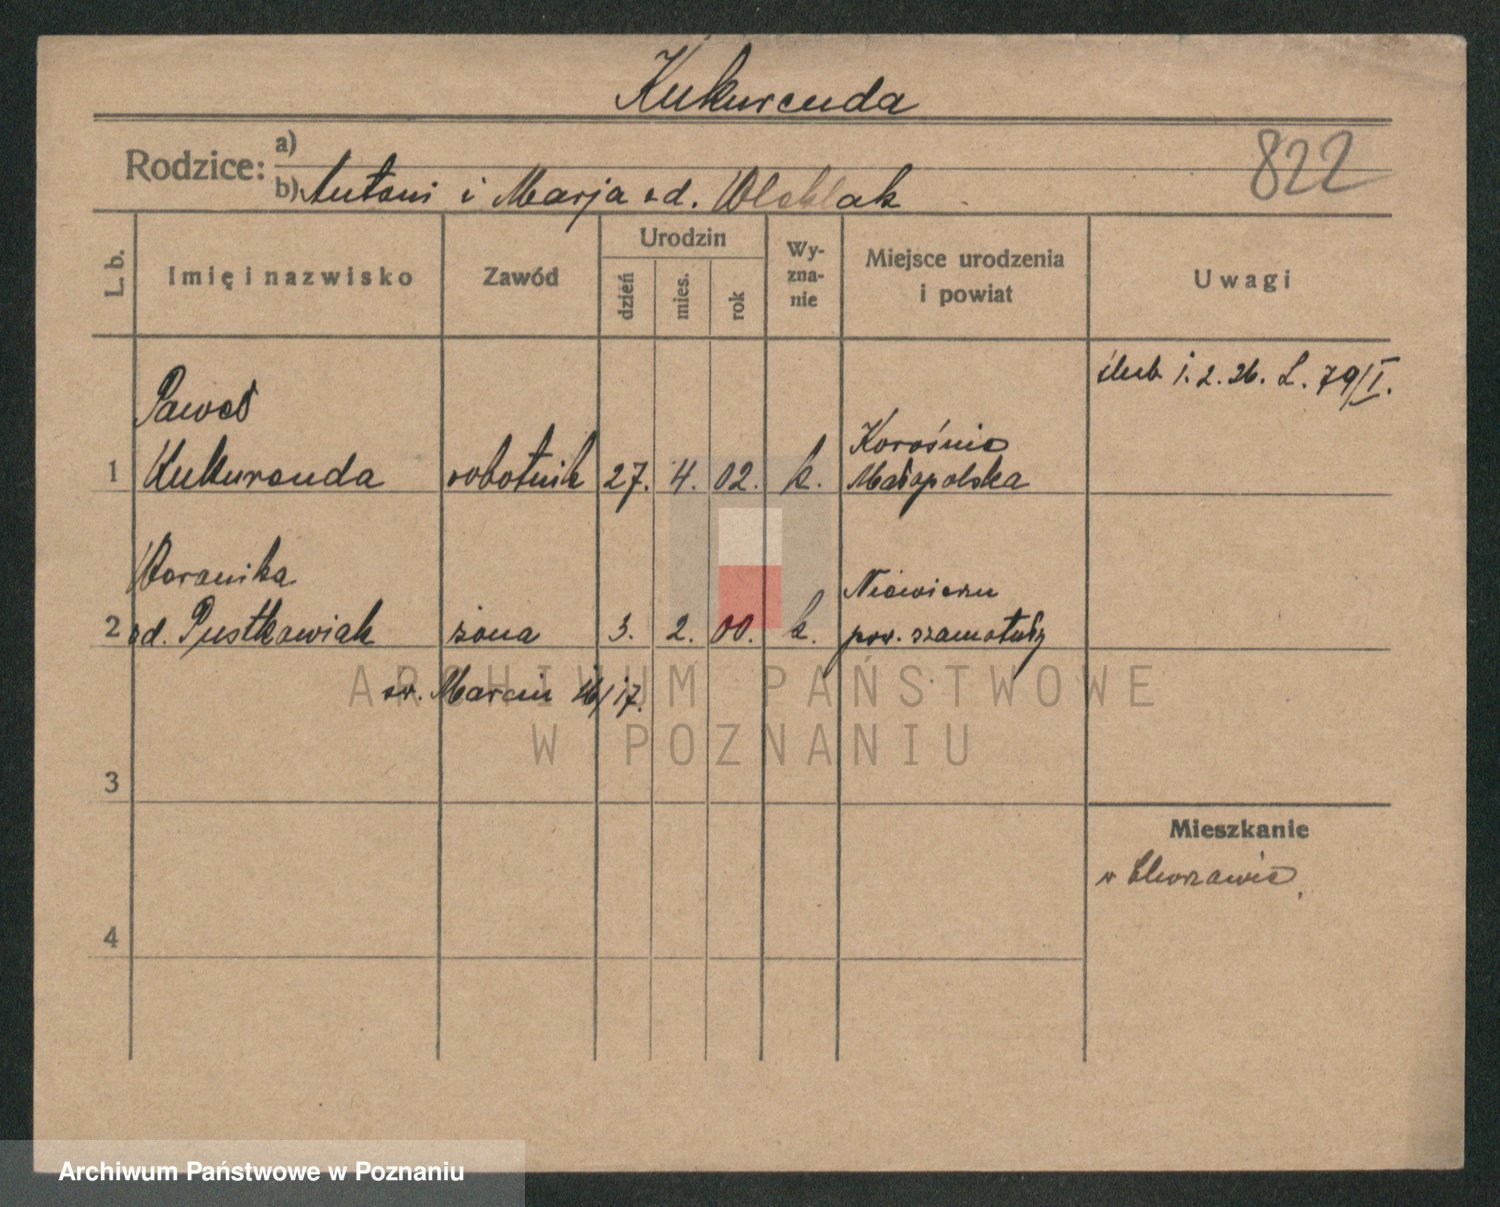 Kukurenda
822
Rodzice: a)
b) Antoni i Marja zd.
L. b. Imię i nazwisko Zawód Urodzin dzień mies. rok Wy-zna-nie Miejsce urodzenia i powiat Uwagi
ślub 1. 2. 26. L. 79/I.
Paweł
1 Kukurenda robotnik 27. 4. 02. k. Korośnie
Małopolska
Weronika
2 zd. Pustkowiak żona 3. 2. 00. k.
pow. szamotuły
św. Marcin 16/17.
3
4
Mieszkanie
ARCHIWUM PAŃSTWOWE
W POZNANIU
Archiwum Państwowe w Poznaniu